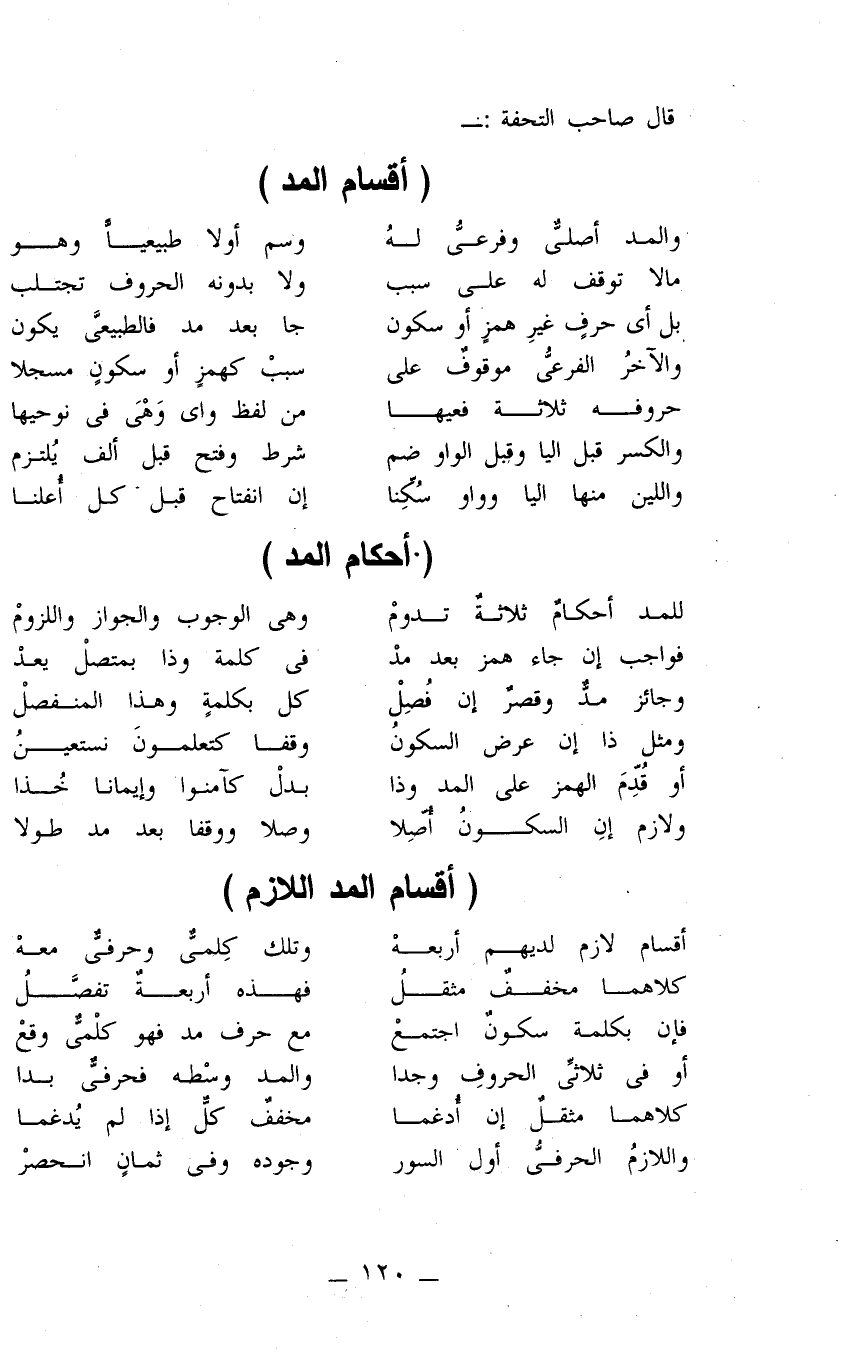 قال صاحب التحفة :ــ
( أقسام المد )
والمـد أصلىٌّ وفرعـىٌّ لــهُ وسم أولا طبيعيــاً وهــو
مالا توقف له علـى سبب ولا بدونه الحروف تجتـلب
بل أى حرفٍ غيرِ همزٍ أو سكون جا بعد مد فالطبيعىَّ يكون
والآخرُ الفرعىُّ موقوفٌ على سببْ كهمزٍ أو سكونٍ مسجلا
حروفــه ثلاثــة فعيهــا من لفظ واى وَهْىَ فى نوحيها
والكسر قبل اليا وقبل الواو ضم شرط وفتح قبل ألف يُلتـزم
واللين منها اليا وواو سُكِّنا إن انفتاح قبـل كـل أُعلنـا
( أحكام المد )
للمـد أحكـامٌ ثلاثـةٌ تـدومْ وهى الوجوب والجواز واللزومْ
فواجب إن جاء همز بعد مدْ فى كلمة وذا بمتصلْ يعدْ
وجائز مـدٌّ وقصرٌ إن فُصِلْ كل بكلمةٍ وهـذا المنـفصلْ
ومثل ذا إن عرض السكونُ وقفـا كتعلمـونَ نستعيـنُ
أو قُدِّمَ الهمز على المد وذا بـدلْ كآمنـوا وإيمانـا خُـذا
ولازم إنِ السكــونُ أُصِّلا وصلا ووقفا بعد مد طـولا
( أقسام المد اللازم )
أقسام لازم لديهـم أربعـهْ وتلك كِلمىٌّ وحرفىٌّ معـهْ
كلاهمـا مخفـفٌ مثقـلُ فهـذه أربعـةٌ تفصَّـلُ
فإن بكلمـة سكـونٌ اجتمـعْ مع حرف مد فهو كلْمىٌّ وقعْ
أو فى ثلاثىِّ الحروفِ وجدا والمد وسْطـه فحرفىٌّ بـدا
كلاهمـا مثقـلٌ إن أُدغمـا مخففٌ كلٌّ إذا لم يُدغمـا
واللازمُ الحرفـىُّ أول السور وجوده وفـى ثمـانٍ انـحصرْ
ــ ١٢٠ ــ